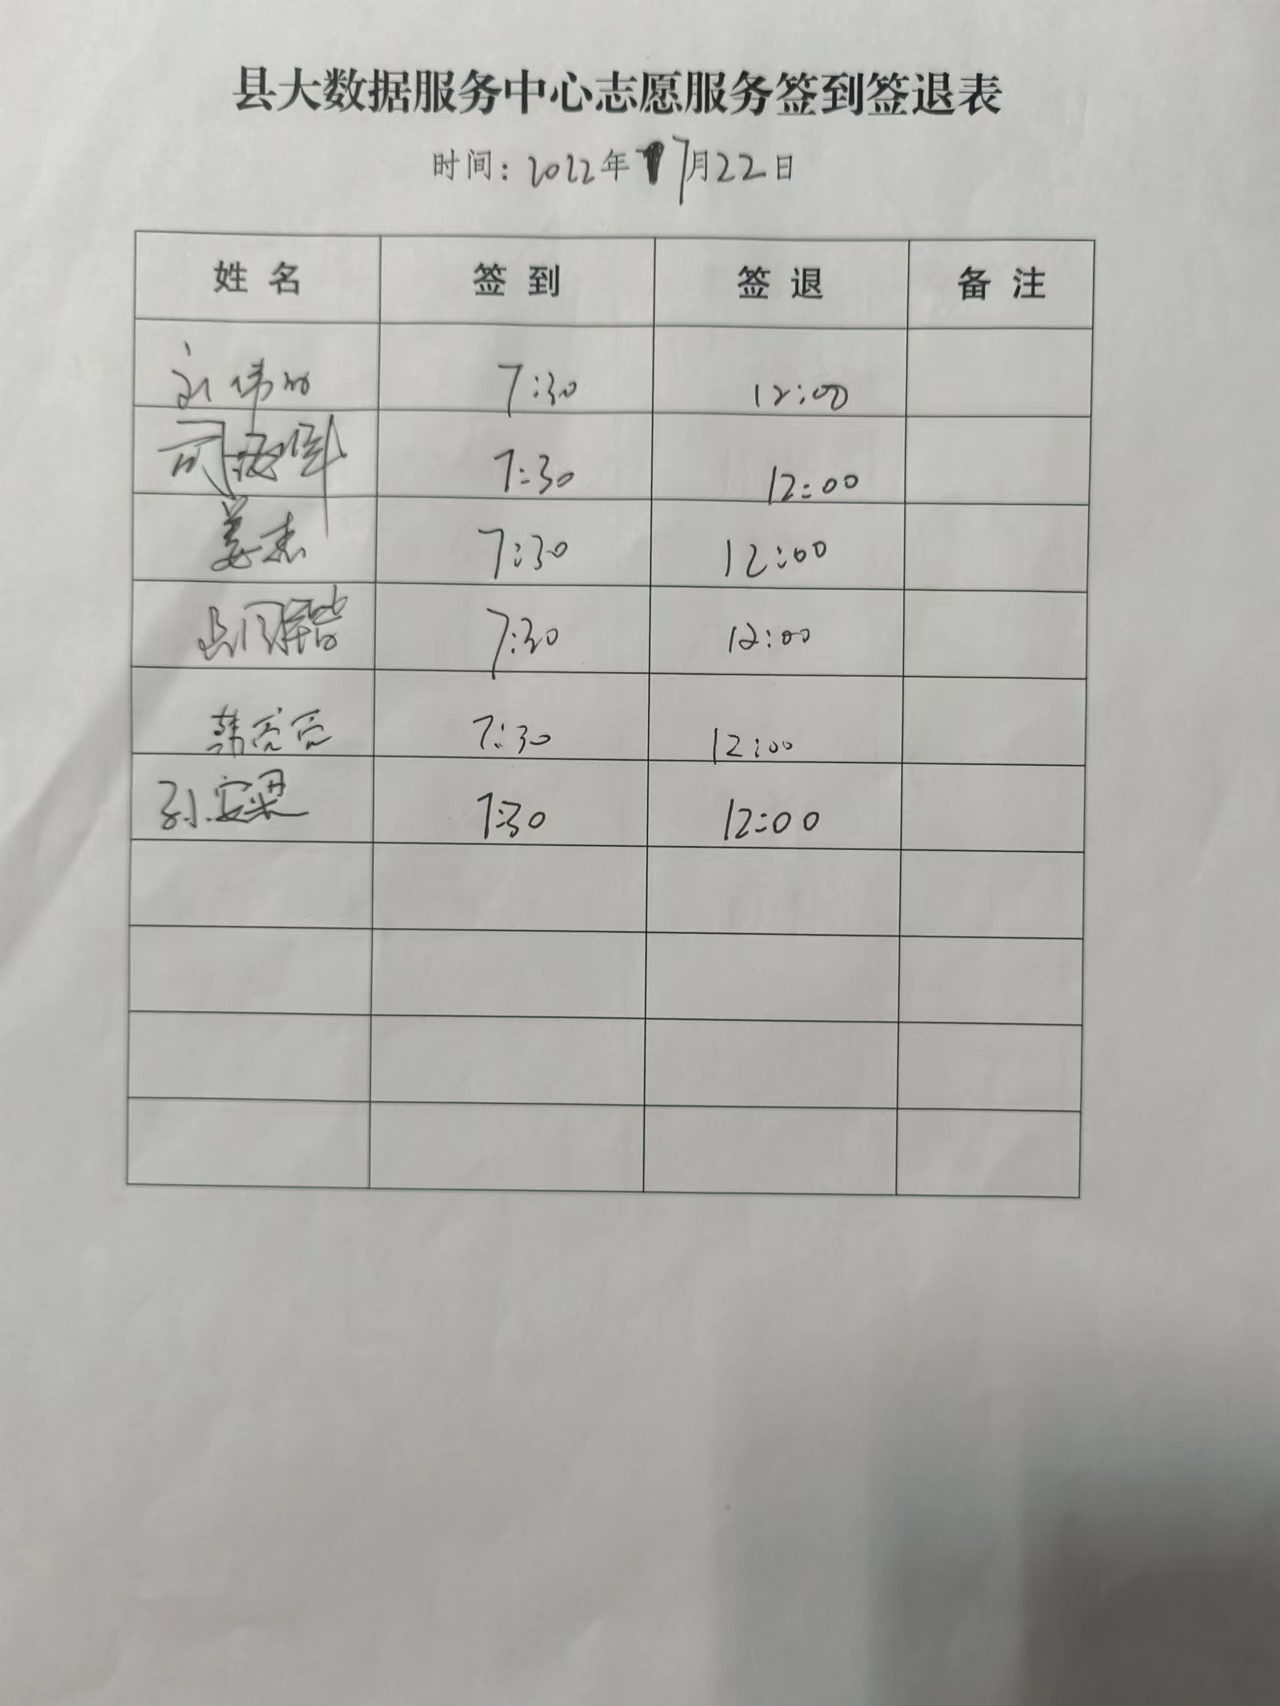 县大数据服务中心志愿服务签到签退表
时间：2022年7月22日
姓名 签到 签退 备注
7:30 12:00
7:30 12:00
姜杰 7:30 12:00
7:30 12:00
韩亮亮 7:30 12:00
孙安梁 7:30 12:00